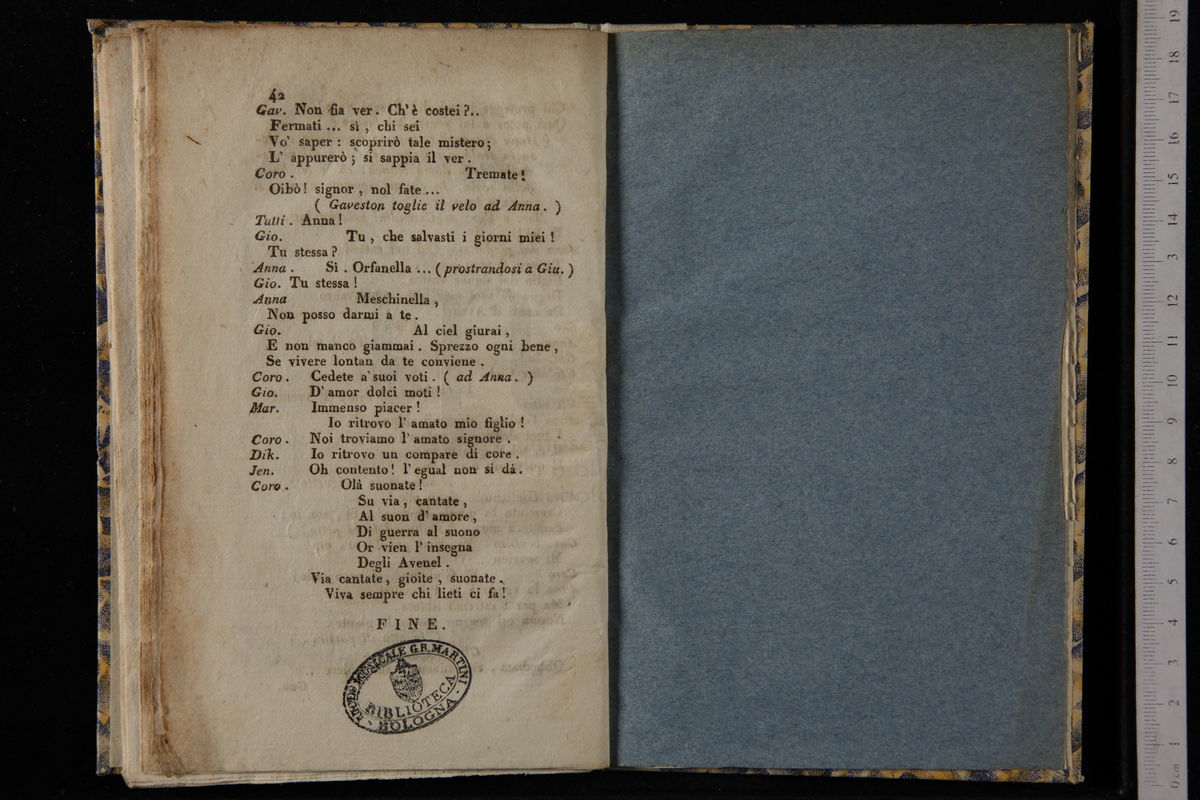 42
Gav. Non fia ver. Ch' è costei?..
Fermati ... sì, chi sei
Vo' saper: scoprirò tale mistero;
L' appurerò; si sappia il ver.
Coro. Tremate!
Oibò! signor, nol fate ...
( Gaveston toglie il velo ad Anna. )
Tutti. Anna!
Gio. Tu, che salvasti i giorni miei!
Tu stessa?
Anna. Sì. Orfanella ... ( prostrandosi a Giu. )
Gio. Tu stessa!
Anna Meschinella,
Non posso darmi a te.
Gio. Al ciel giurai,
E non manco giammai. Sprezzo ogni bene,
Se vivere lontan da te conviene.
Coro. Cedete a' suoi voti. ( ad Anna. )
Gio. D' amor dolci moti!
Mar. Immenso piacer!
Io ritrovo l' amato mio figlio!
Coro. Noi troviamo l' amato signore.
Dik. Io ritrovo un compare di core.
Jen. Oh contento! l' egual non si dà.
Coro. Olà suonate!
Su via, cantate,
Al suon d' amore,
Di guerra al suono
Or vien l' insegna
Degli Avenel.
Via cantate, gioite, suonate.
Viva sempre chi lieti ci fa!
FINE.
LICEO MUSICALE G.B. MARTINI
BIBLIOTECA
- BOLOGNA -
0 cm 1 2 3 4 5 6 7 8 9 10 11 12 13 14 15 16 17 18 19